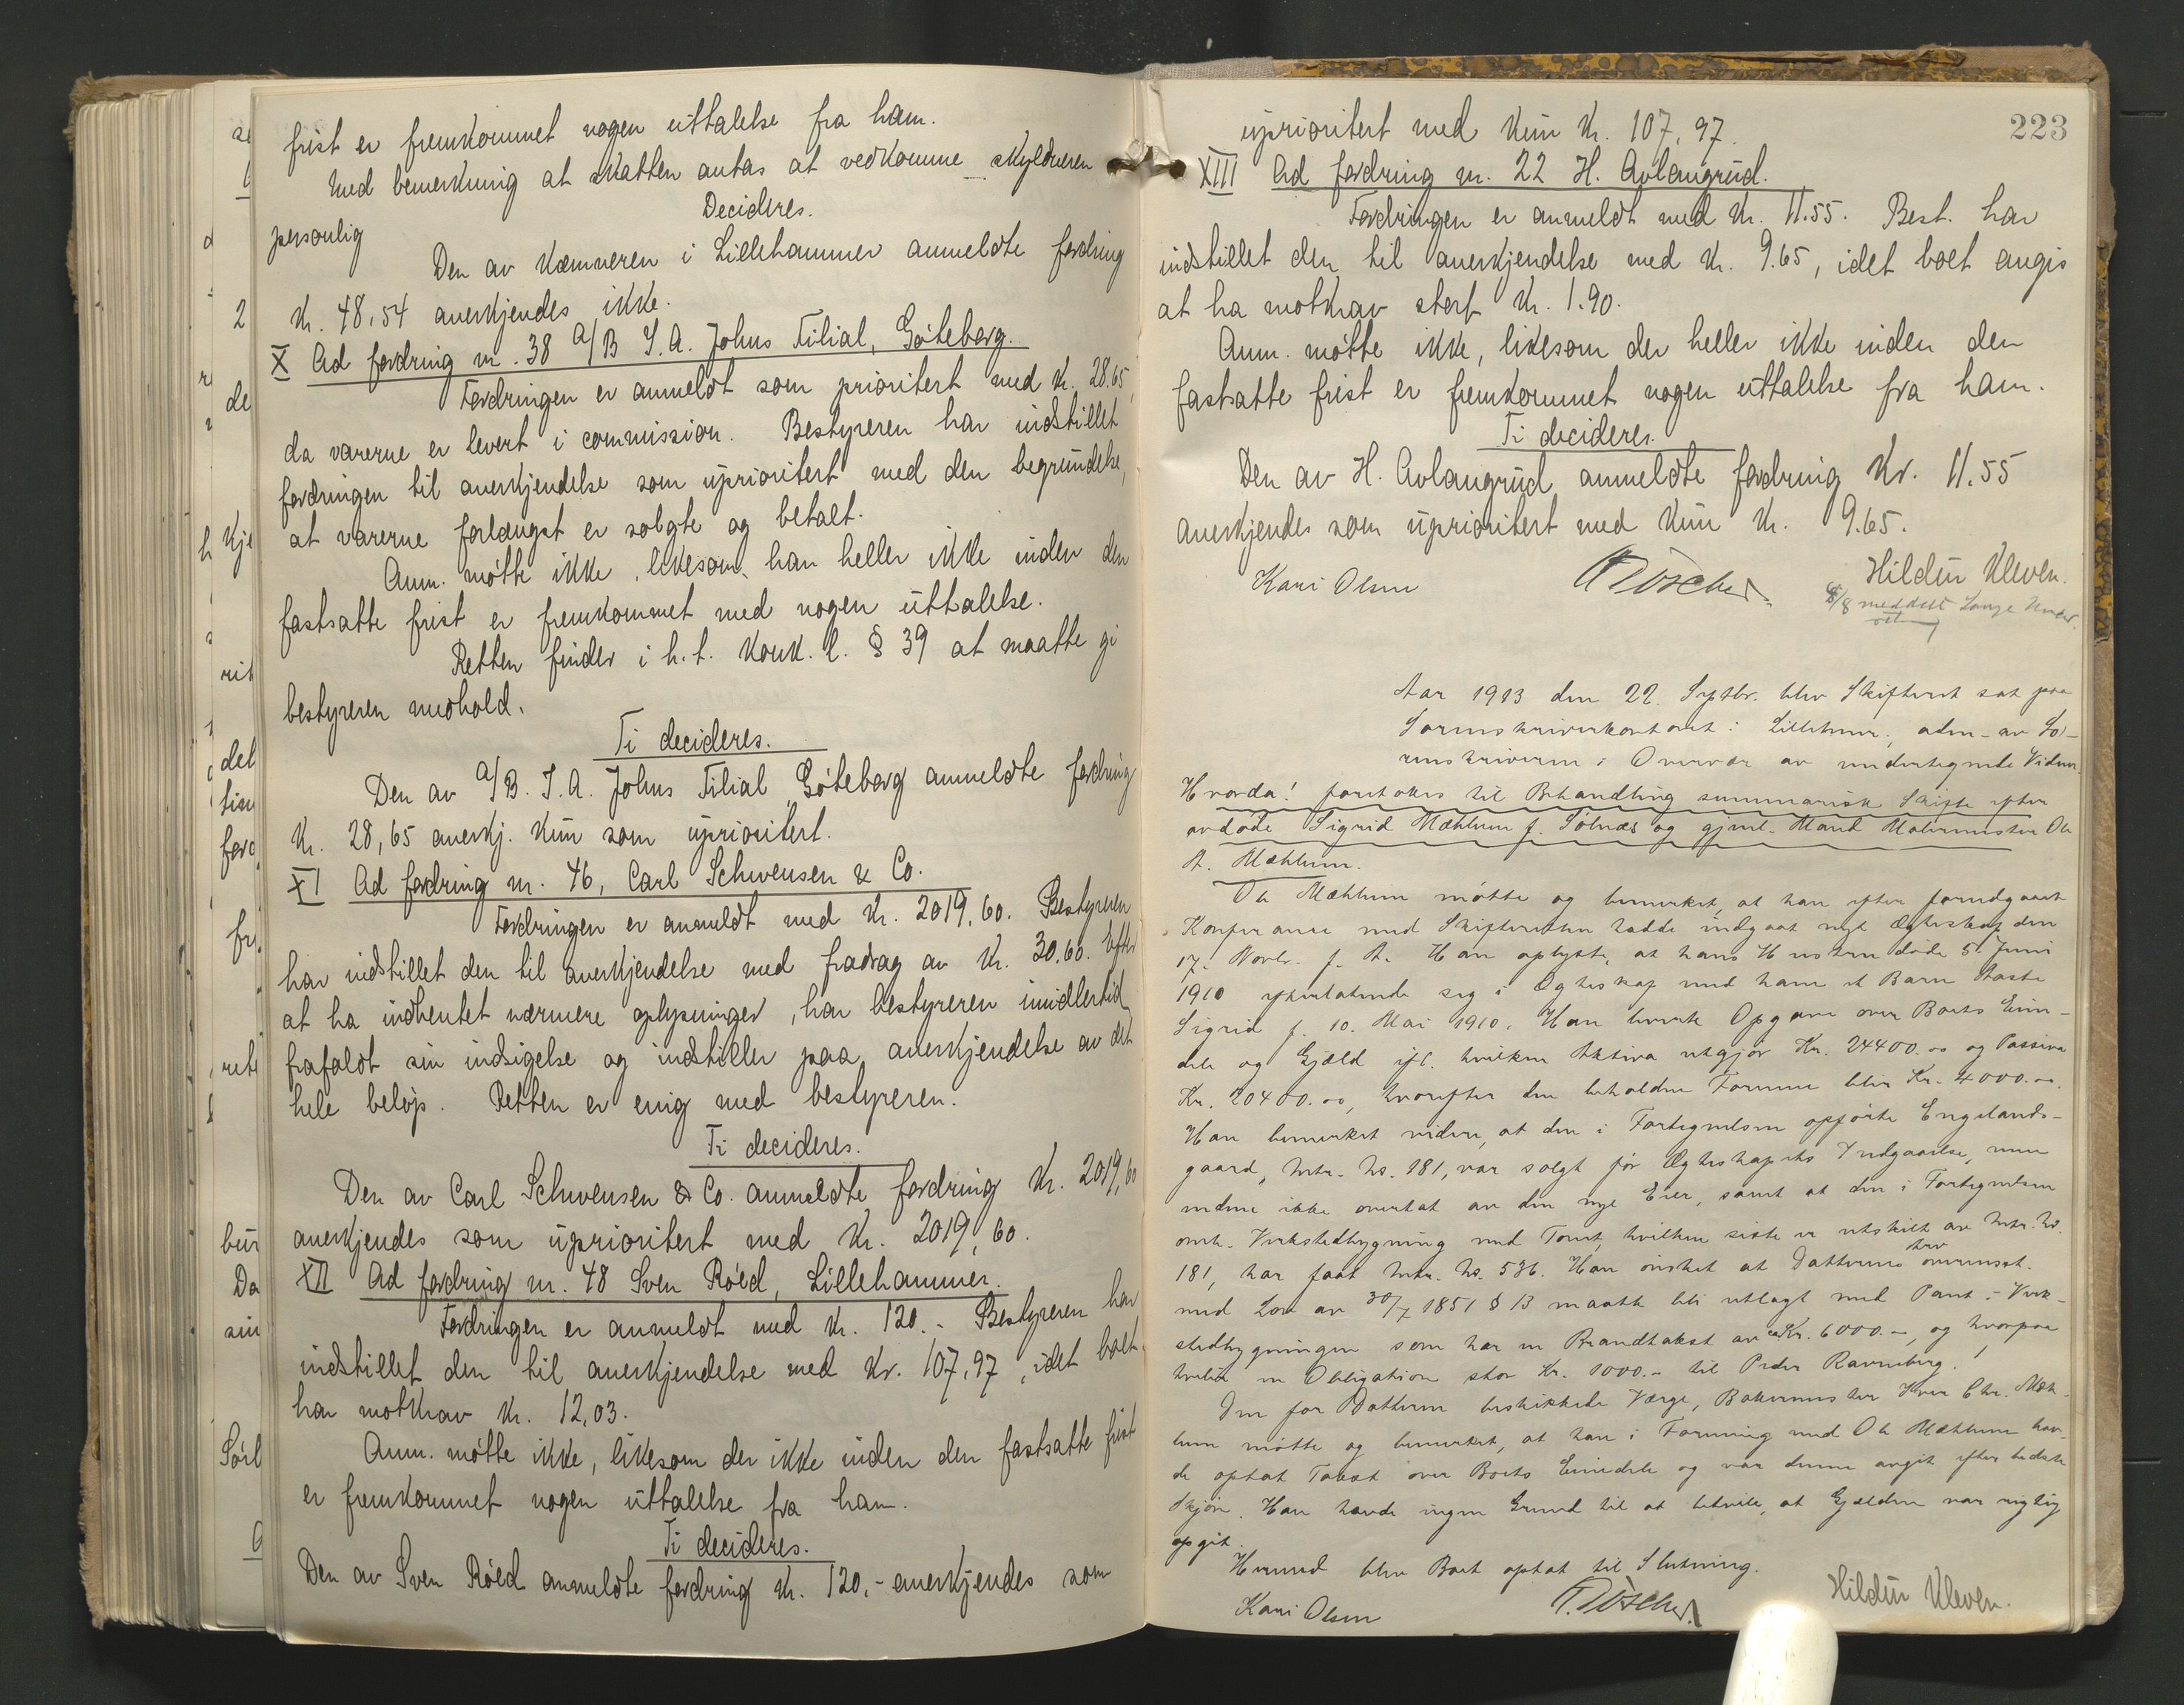 frist er fremkommet nogen uttalelse fra ham.
Med bemerkning at skatten antas at vedkomme skyldneren
personlig
Decideres.
Den av kæmneren i Lillehammer anmeldte fordring
Kr. 48,54 anerkjendes ikke.
X Ad fordring nr. 38 A/B I.A. Johns Filial, Göteborg.
Fordringen er anmeldt som prioritert med kr. 28.65,
da varerne er levert i commission. Bestyreren har indstillet
fordringen til anerkjendelse som uprioritert med den begrundelse,
at varerne forlængst er solgte og betalt.
Anm. møtte ikke, likesom han heller ikke inden den
fastsatte frist er fremkommet med nogen uttalelse.
Retten finder i h.t. konk. l. § 39 at maatte gi
bestyreren medhold.
Ti decideres.
Den av A/B. I.A. Johns Filial, Göteborg anmeldte fordring
Kr. 28,65 anerkj. kun som uprioritert.
XI Ad fordring nr. 46, Carl Schwensen & Co.
Fordringen er anmeldt med kr. 2019,60. Bestyreren
har indstillet den til anerkjendelse med fradrag av kr. 30.60. Efter
at ha indhentet nærmere oplysninger, har bestyreren imidlertid
frafaldt sin indsigelse og indstiller paa anerkjendelse av det
hele beløp. Retten er enig med bestyreren.
Ti decideres.
Den av Carl Schwensen & Co. anmeldte fordring Kr. 2019,60
anerkjendes som uprioritert med Kr. 2019,60.
XII Ad fordring nr. 48 Sven Røed, Lillehammer.
Fordringen er anmeldt med kr. 120.- Bestyreren har
indstillet den til anerkjendelse med Kr. 107,97, idet boet
har motkrav kr. 12,03.
Anm. møtte ikke, likesom der ikke inden den fastsatte frist
er fremkommet nogen uttalelse fra ham.
Ti decideres.
Den av Sven Røed anmeldte fordring kr. 120,- anerkjendes som
223
uprioritert med kun kr. 107,97.
XIII Ad fordring nr. 22 H. Avlangrud.
Fordringen er anmeldt med kr. 11.55. Best. har
indstillet den til anerkjendelse med kr. 9.65, idet boet angis
at ha motkrav stort kr. 1.90.
Anm. møtte ikke, likesom der heller ikke inden den
fastsatte frist er fremkommet nogen uttalelse fra ham.
Ti decideres.
Den av H. Avlangrud anmeldte fordring Kr. 11.55
anerkjendes som uprioritert med kun kr. 9.65.
Kari Olsen Hildur Kleven.
8/8 meddelt
Aar 1913 den 22. Septbr. blev Skifteret sat paa
Sorenskriverkontoret i Lillehmr., adm. av So-
renskriveren i Overvær av undertegnede Vidner.
Hvorda! foretokes til Behandling summarisk Skifte efter
avdøde Sigrid Mæhlum f. Sølnæs og gjenl. Mand Malermester Ole
A. Mæhlum.
Ole Mæhlum møtte og bemerket, at han efter forutgaaet
Konferanse med Skifteretten hadde indgaat nyt Ægteskap den
17. Novbr. f. A. Han oplyste, at hans Hustru døde 5. Juni
1910 efterlatende sig i Ægteskap med ham et Barn Aasta
Sigrid f. 10. Mai 1910. Han leverte Opgave over Boets Eien-
dele og Gjæld ifl. hvilken Aktiva utgjør Kr. 24400.00 og Passiva
Kr. 20400.00, hvorefter den beholdne Formue blir Kr. 4000.00.
Han bemerket videre, at den i Fortegnelsen opførte Engelands-
gaard, Mtr. No. 181, var solgt før Ægteskapets Indgaaelse, men
endnu ikke overtat av den nye Eier, samt at den i Fortegnelsen
omh. Verkstedbygning med Tomt, hvilken siste er utskilt av Mtr. No.
181, har faat Mtr. No. 536. Han ønsket at Datterens Arv overensst.
med Lov av 30/7 1851 § 13 maatte bli utlagt med Pant i Verk-
stedbygningen som har en Brandtakst av ca Kr. 6000.-, og hvorpaa
hviler en Obligation stor Kr. 1000.- til Peder Ravneberg.
Den for Datteren beskikkede Værge, Bakermester Iver Chr. Mæh-
lum møtte og bemerket, at han i Forening med Ole Mæhlum hav-
de optat Takst over Boets Eiendele og var denne avgit efter bedste
Skjøn. Han havde ingen Grund til at betvile, at Gjælden var rigtig
opgit.
Hermed blev Boet optat til Slutning.
Kari Olsen Hildur Kleven.